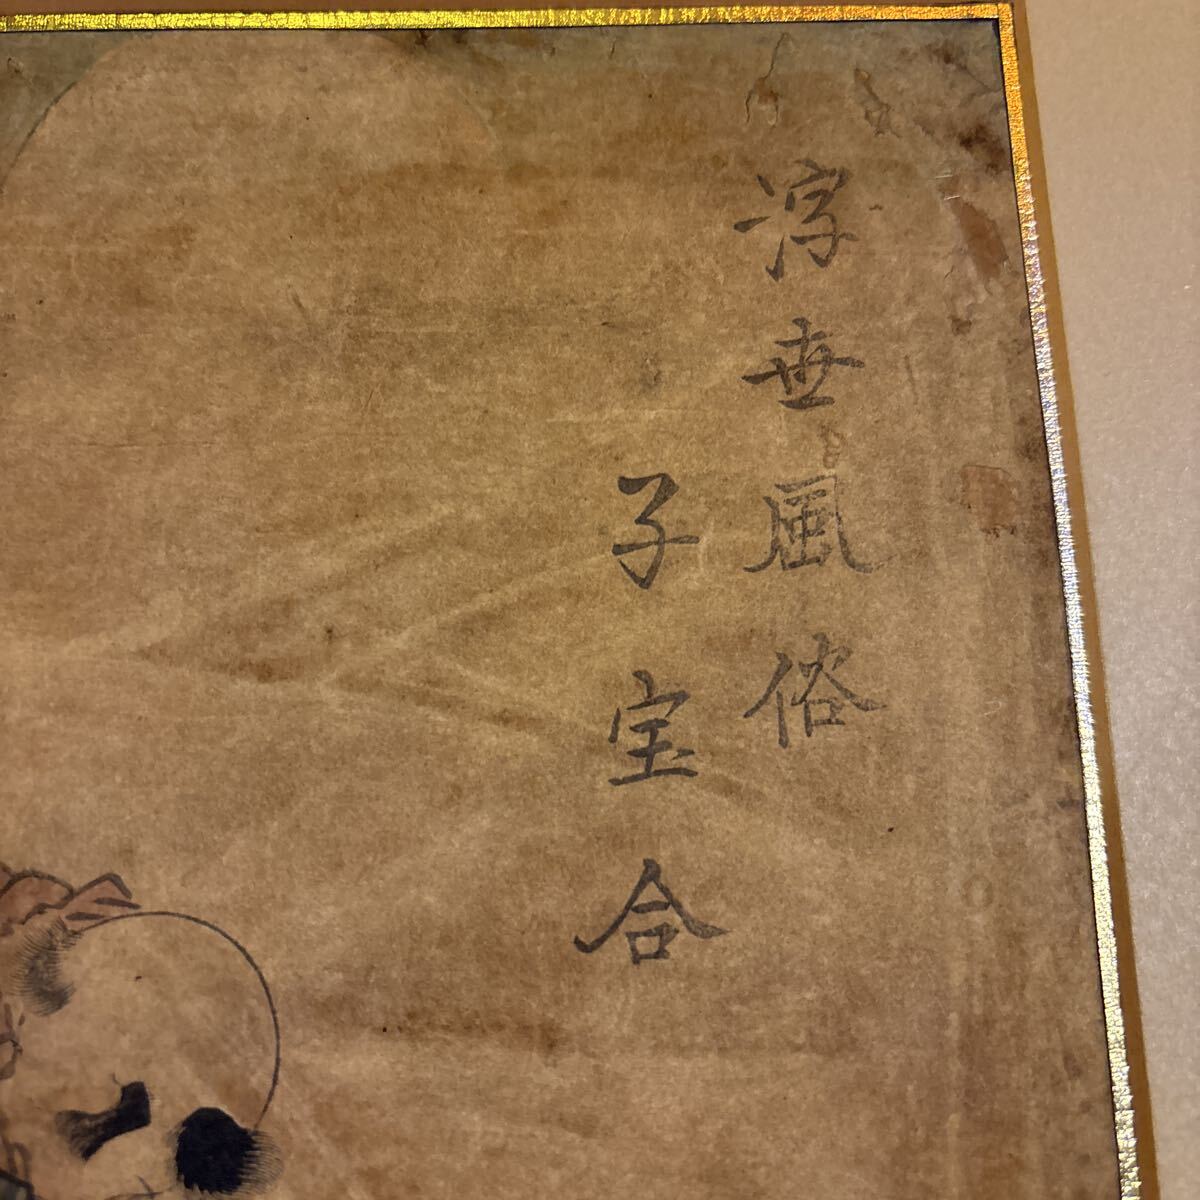 浮世風俗
子宝合